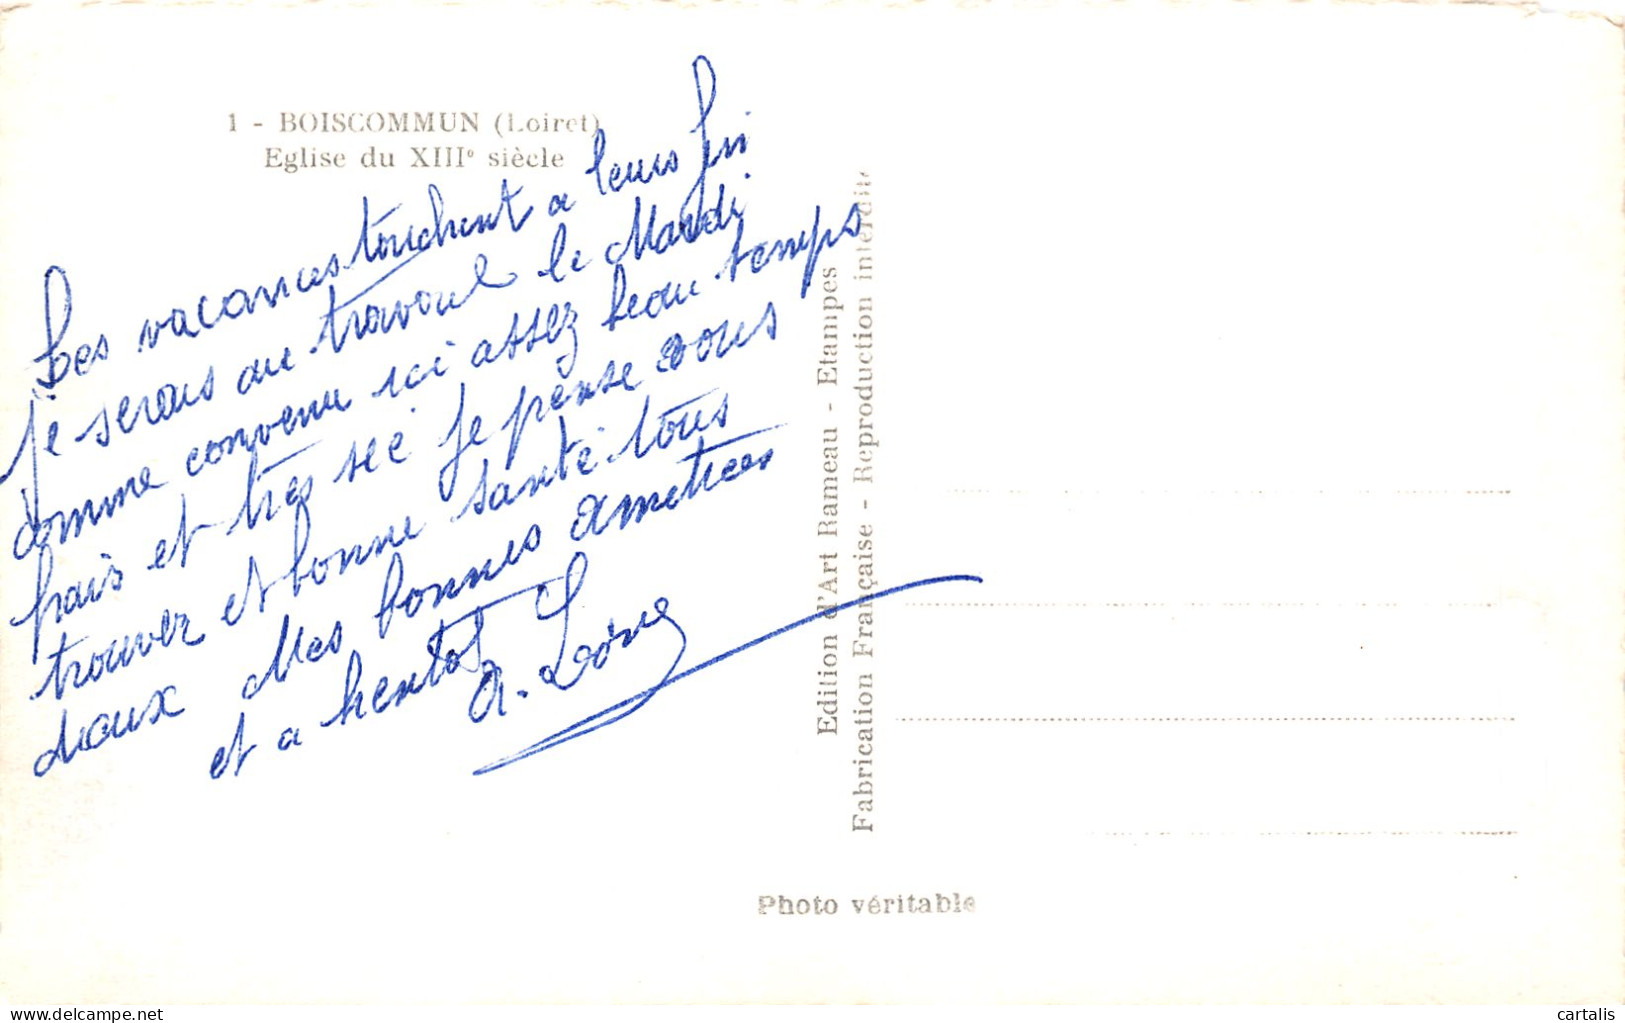 1 - BOISCOMMUN (Loiret)
Eglise du XIIIe siècle
Les vacances touchent a leurs fin
je serais au travail le Mardi
comme convenu ici assez beau temps
frais et très sec je pense vous
trouver et bonne santé tous
deux Mes bonnes amitiées
et a bientot
A.
Edition d'Art Rameau - Etampes
Fabrication Française - Reproduction interdite
Photo véritable
cartalis